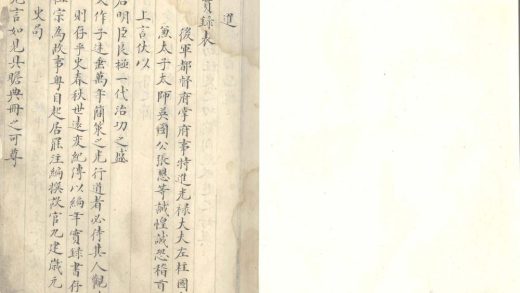 進
實錄表
後軍都督府掌府事特進光祿大夫左柱國
兼太子太師英國公張懋等誠惶誠恐稽首
上言伏以
君明臣良極一代治功之盛
作子述垂萬年簡策之光行道者必待其人觀
則存乎史春秋世遠變紀傳以編年實錄書
宗為故事粤自起居罷注編撰設官凡建歲元
史局
言如見具瞻典冊之可尊